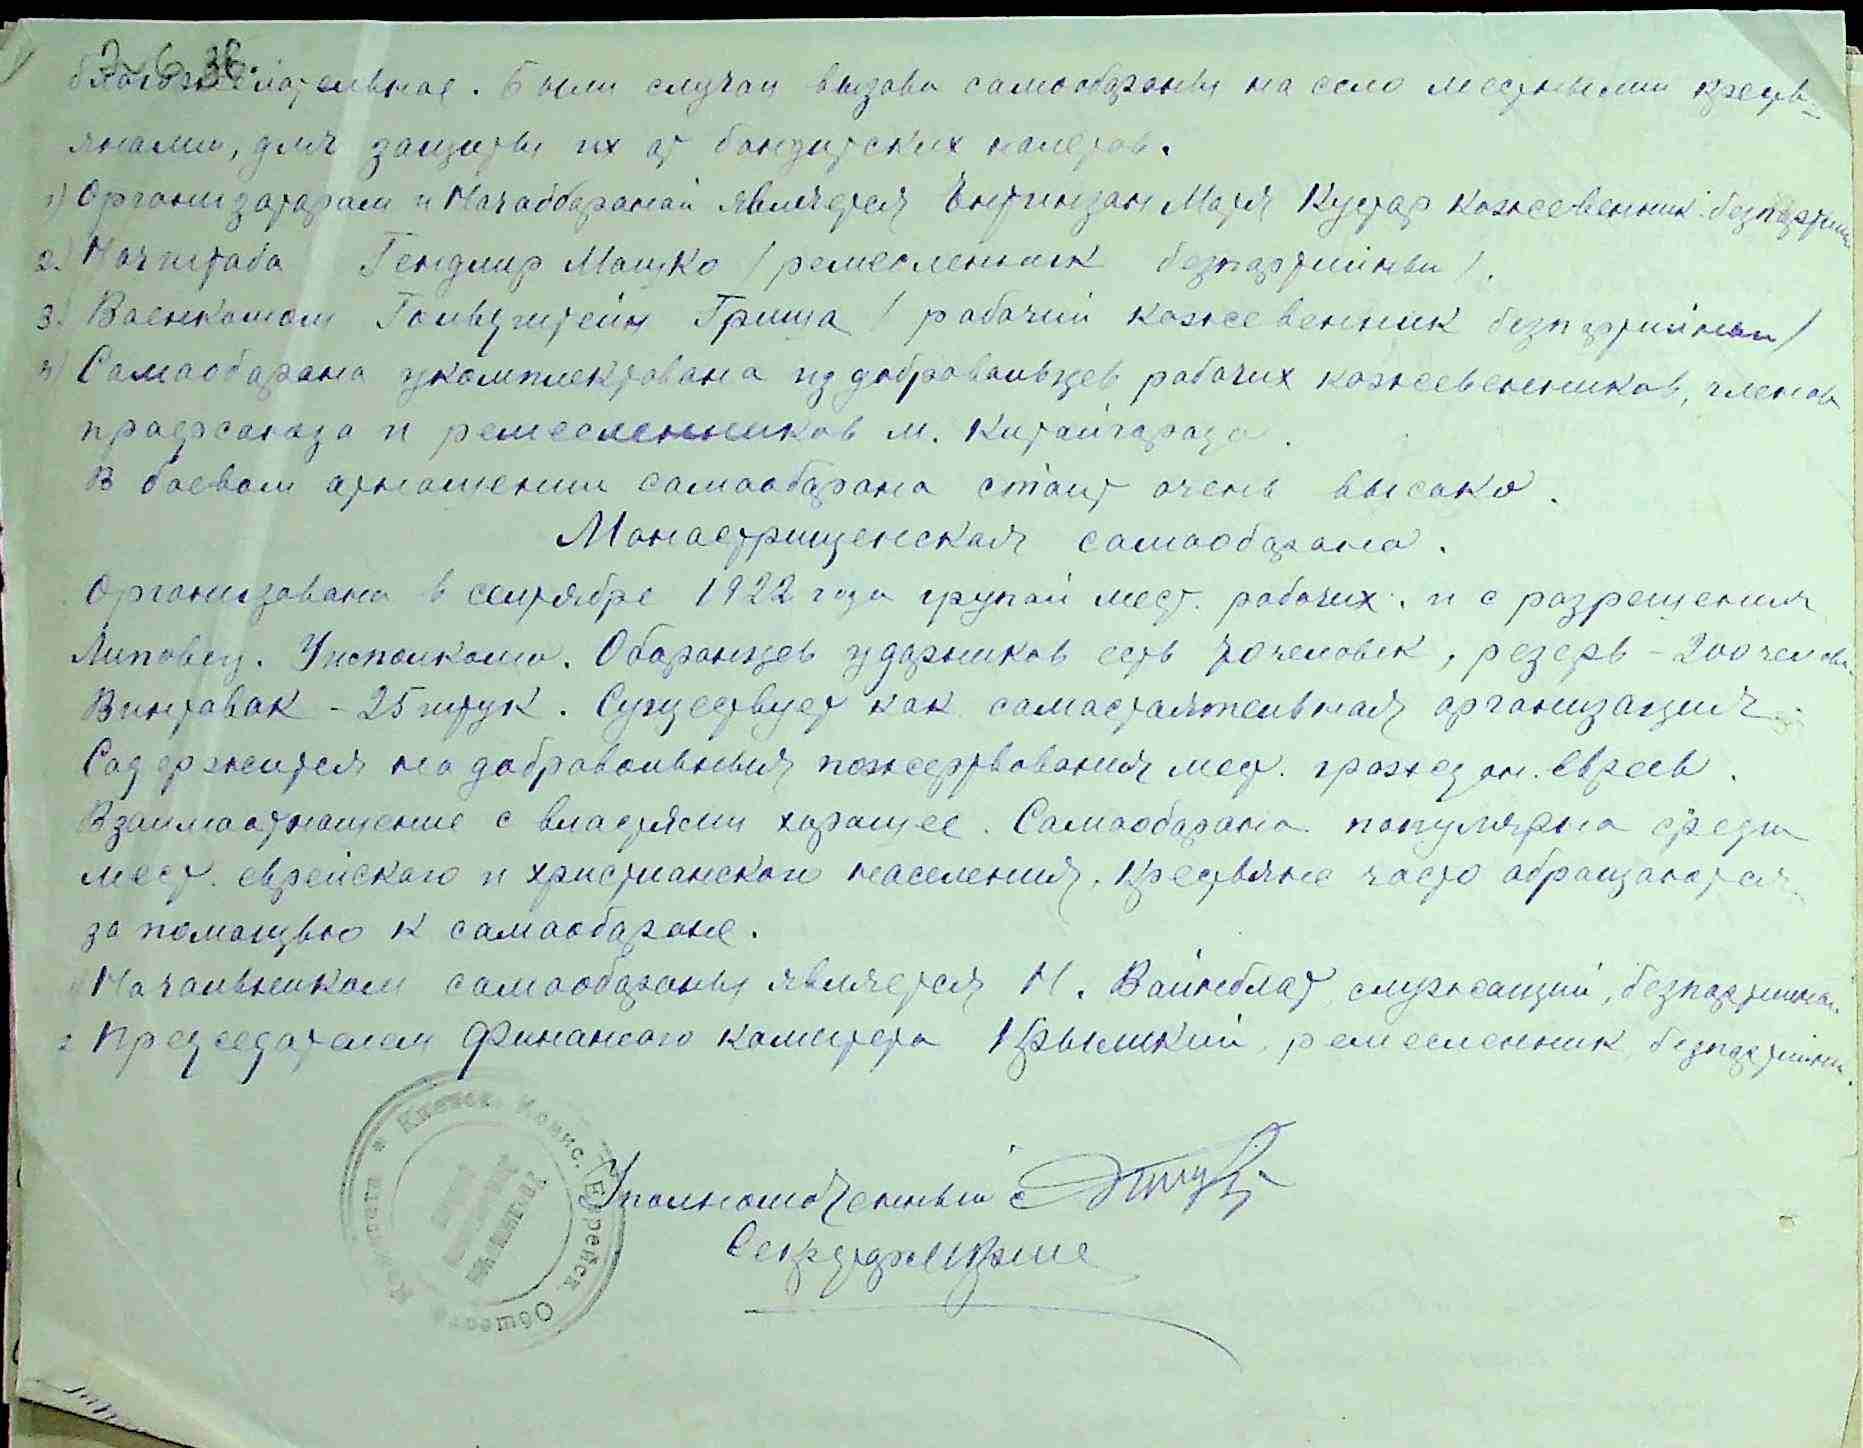 благожелательное. Были случаи вызова самообароны на село местными кресть-
янами, для защиты их от бандитских налетов.
1) Организатарам и Начоббараной является Ентинзан Мотя Кустар кожевенник безпартий
2.) Начштаба Гендлир Мошко / ремесленник безпартийный /.
3.) Военкомом Гольдштейн Гриша / рабочий кожевенник безпартийный /
4) Самаобарана укомплектована из добровольцев рабочих кожевенников, членов
профсоюза и ремесленников м. Китайгорода.
В боевом атношении самаобарана стоит очень высоко.
Манастрищенская самаобарана.
Организована в сентябре 1922 года групай мест. рабочих. и с разрешения
Липовец. Уисполкома. Обаронцев ударников есть 70 человек, резерв - 200 челов.
Винтавак - 25 штук. Существует как самастаятельная организация
Садержится на добравольныя пожертвования мест. граждан. Евреев.
Взаимаатнашение с властями харашее. Самаобарана популярна среди
мест. еврейского и христианского населения. Крестьяне часто абращаются
за помащью к самаобароне.
1 Начальником самаобараны является Н. Вайнблат служащий, безпартийный.
2 Председателем Финансаго камитета Крымский, ремесленник безпартийный.
Киевск. Комис. Еврейск. Обществ. Комитета
Упалномоченный
Секретарь